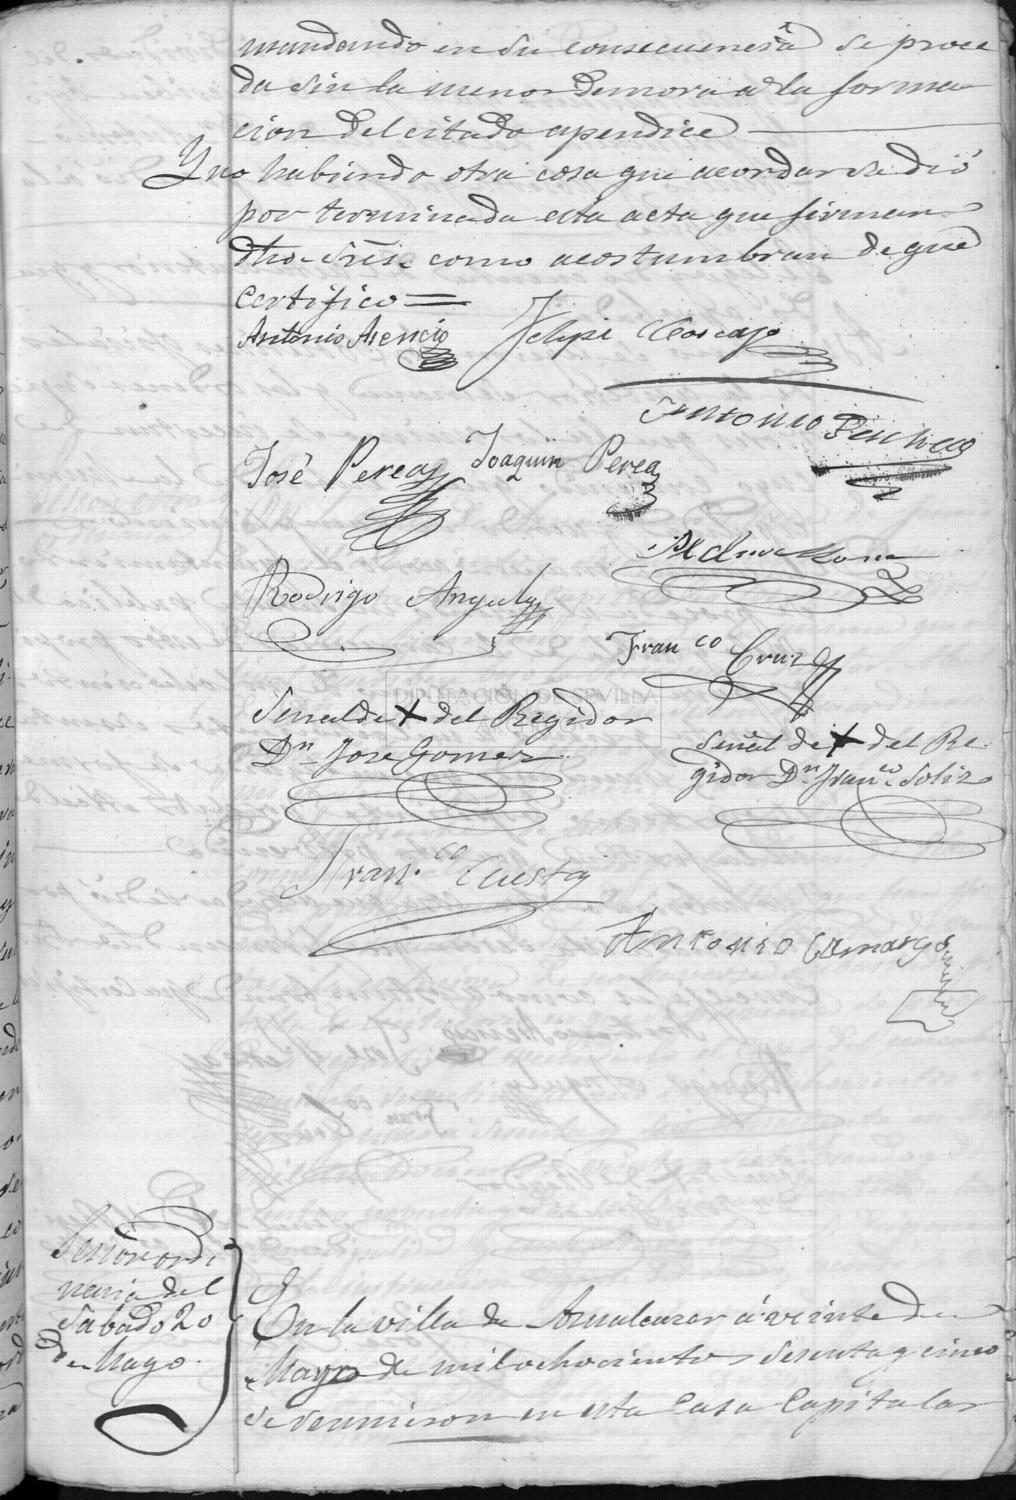 mandando en su consecuencia se proce
da sin la menor demora a la forma
cion del citado apendice
Y no habiendo otra cosa que acordar se dió
por terminada esta acta que firman
dhos Sres. como acostumbran de que
certifico=
Antonio Asencio
Felipe
Antonio Pacheco
José Perea
Joaquin Perea
Rodrigo Angulo
Franco Cruz
DIPUTACIÓN DE SEVILLA
Señal de X del Regidor
Dn Jose Gomez
Señal de X del Re
gidor Dn Franco Solis
Fran.co Cuesta
Antonio Camargo
Sesion ordi
naria del
Sabado 20
de Mayo.
En la villa de Aznalcazar á veinte de
Mayo de mil ochocientos sesenta y cinco
se reunieron en esta Casa Capitular